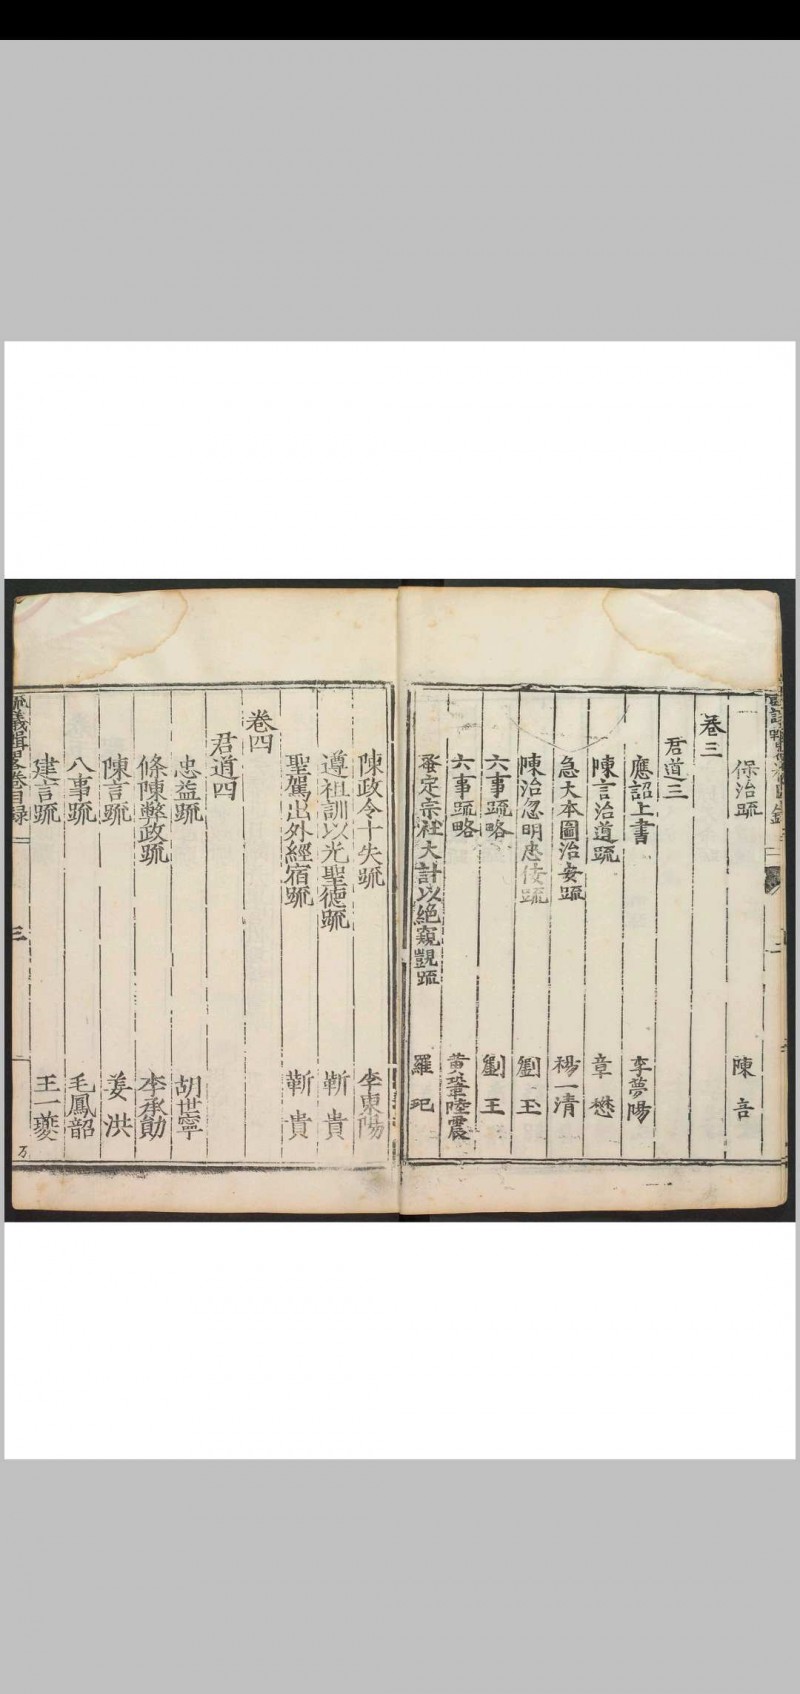 保治疏 陳言
卷三
君道三
應詔上書 李夢陽
陳言治道疏 章懋
急大本圖治安疏 楊一清
陳治忽明忠佞疏 劉玉
六事疏略 劉玉
六事疏略 黃鞏陸震
蚤定宗社大計以絕窺覬疏 羅玘
陳政令十失疏 李東陽
遵祖訓以光聖德疏 靳貴
聖駕出外經宿疏 靳貴
卷四
君道四
忠益疏 胡世寧
條陳弊政疏 李承勛
陳言疏 姜洪
八事疏 毛鳳韶
建言疏 王一夔
疏議輯略卷目錄 三